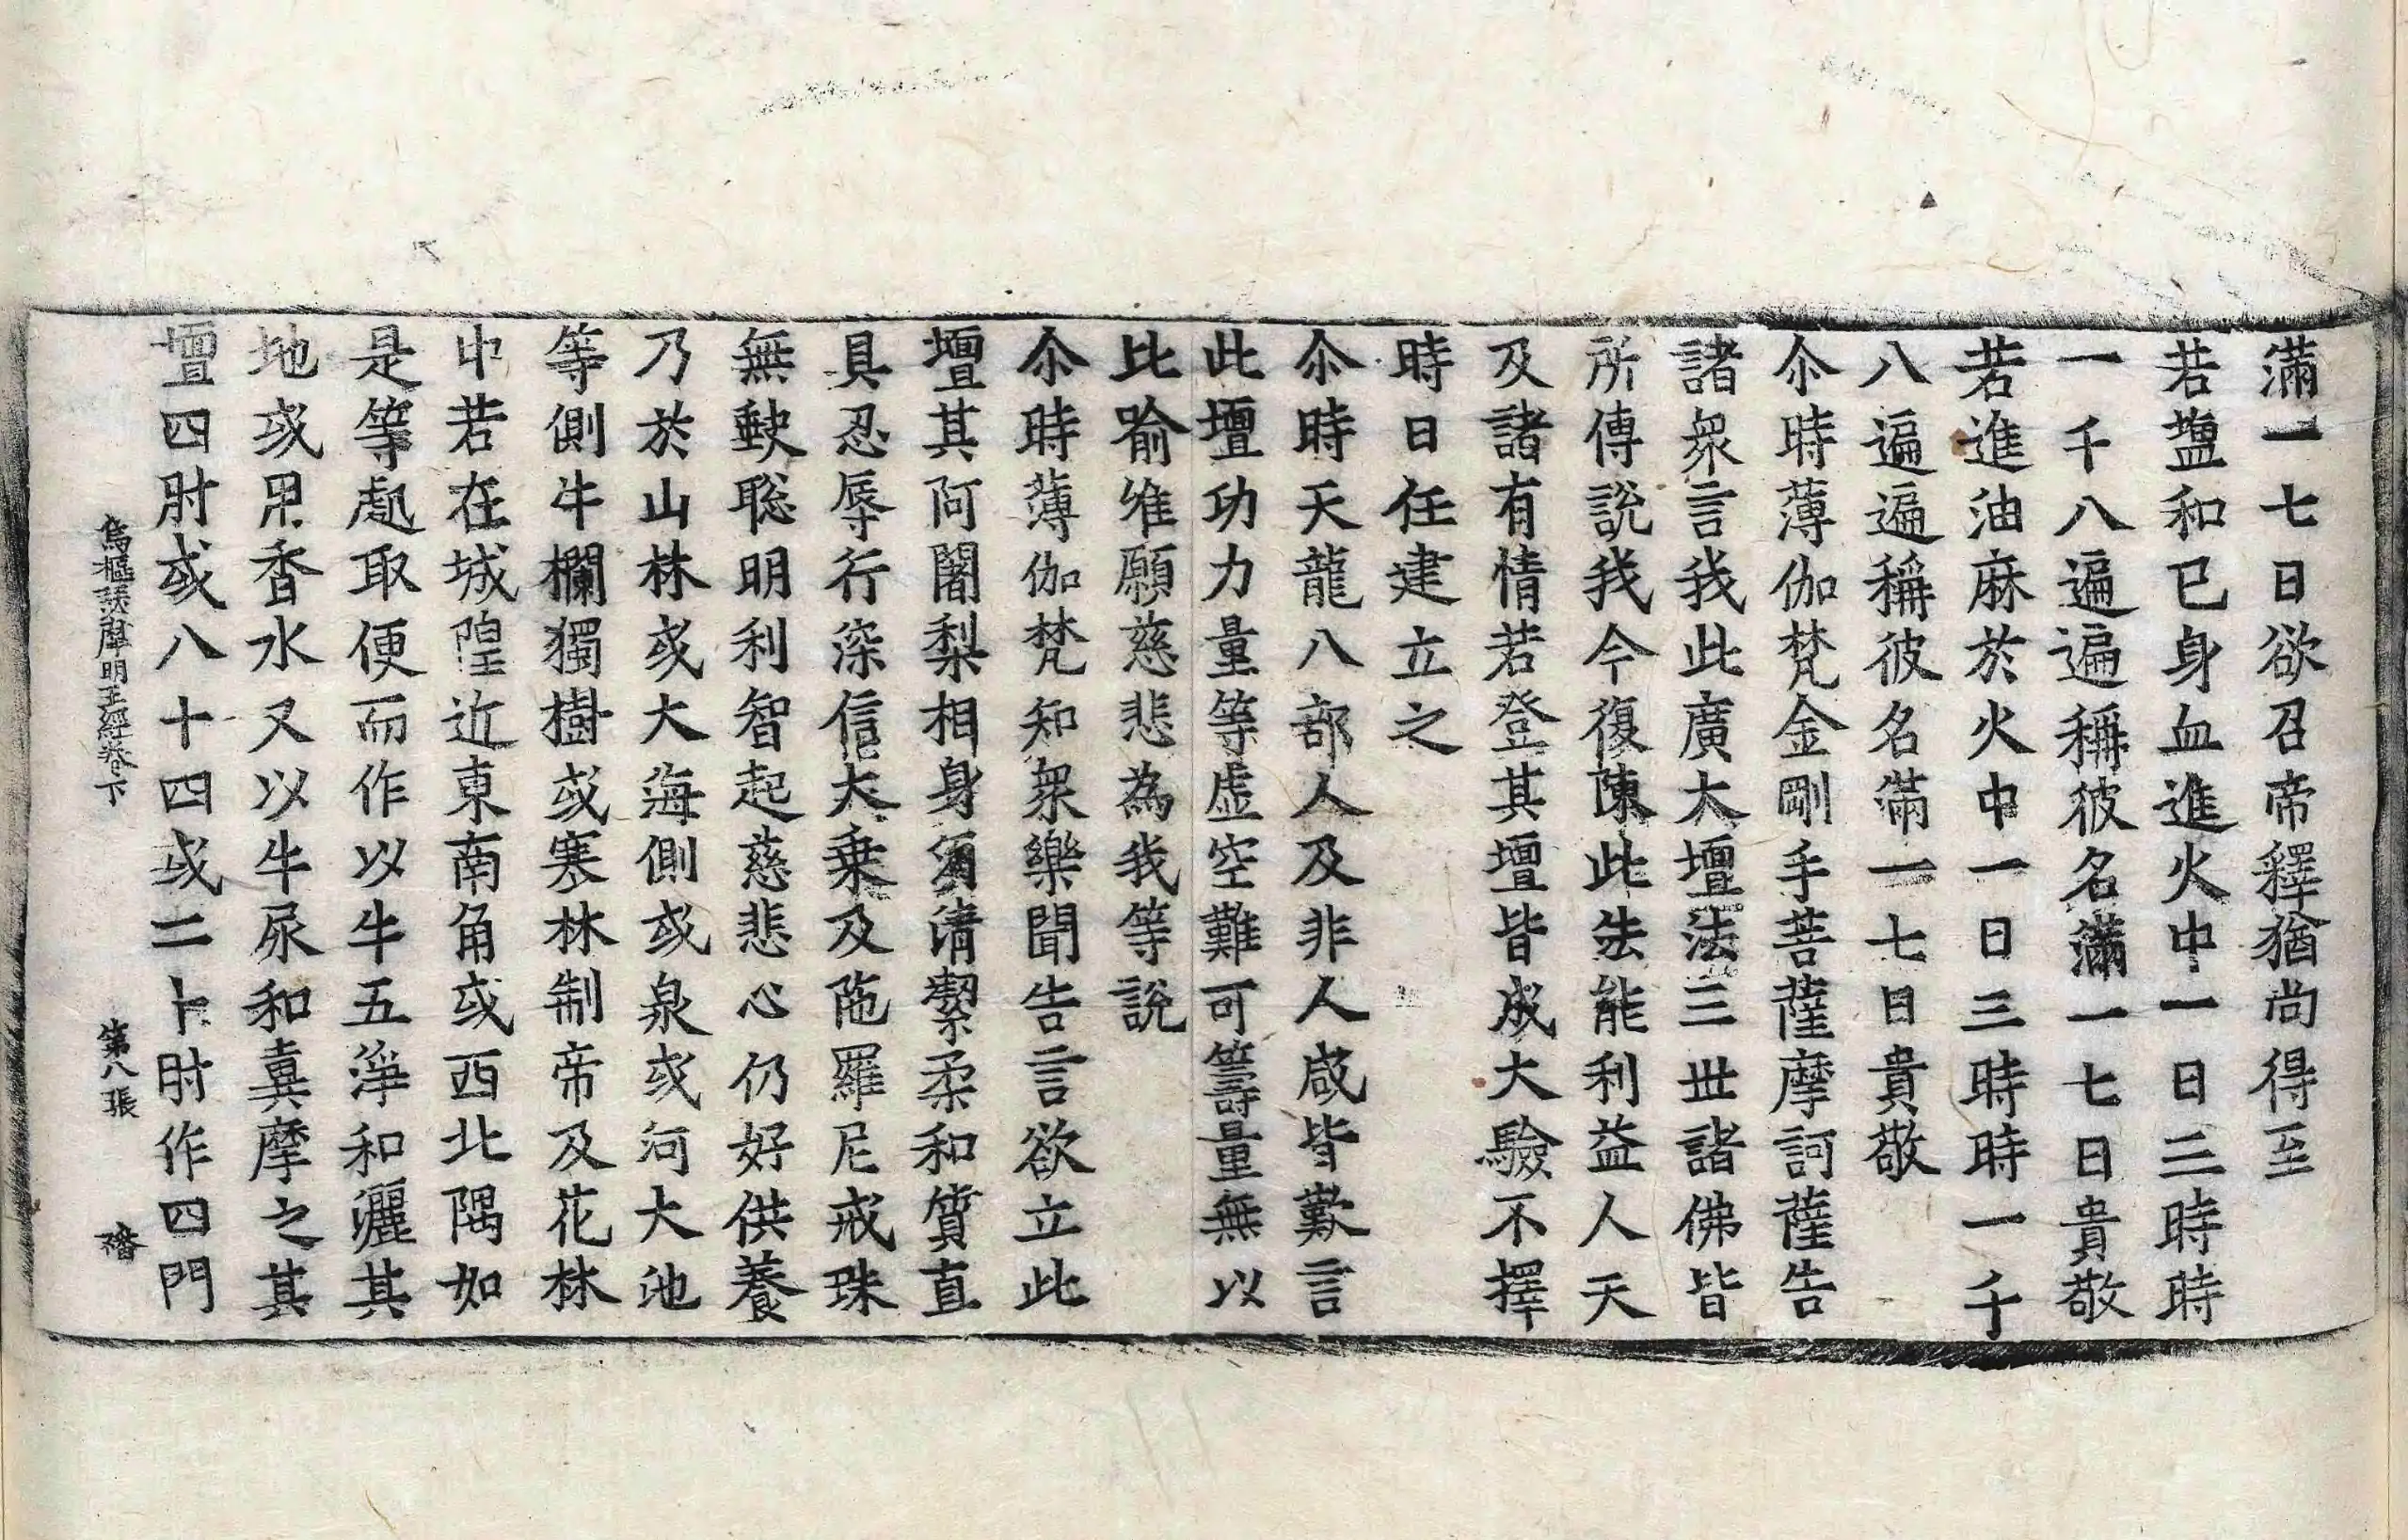 滿一七日欲召帝釋猶尚得至
若盐和已身血進火中一日三時時
一千八遍遍稱彼名滿一七日貴敬
若進油麻於火中一日三時時一千
八遍遍稱彼名滿一七日貴敬
尒時薄伽梵金剛手菩薩摩訶薩告
諸衆言我此廣大壇法三世諸佛皆
所傳說我今復陳此法能利益人天
及諸有情若登其壇皆成大驗不擇
時日任建立之
尒時天龍八部人及非人咸皆歎言
此壇功力量等虛空難可籌量無以
比喻唯願慈悲為我等說
尒時薄伽梵知衆樂聞告言欲立此
壇其阿闍梨相身須清潔柔和質直
具忍辱行深信大乗及陁羅尼戒珠
無𡙇聡明利智起慈悲心仍好供養
乃於山林或大海側或泉或河大池
等側牛欄獨樹或寒林制帝及花林
中若在城隍近東南角或西北隅如
是等處取便而作以牛五淨和灑其
地或用香水又以牛尿和糞摩之其
壇四肘或八十四或二十肘作四門
烏樞瑟摩明王經卷下 第八張 㿔